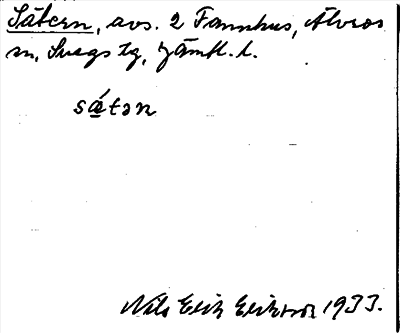 Sätern, avs. 2 Fannhus, Älvros
sn, Svegs tg, Jämtl. l.
sǽtən
Nils Erik Eriksson 1933.